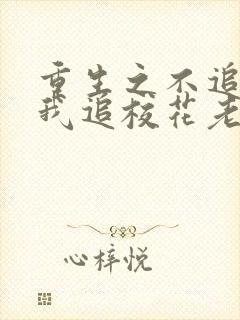 重生之不追
我追校花老
心梓悦